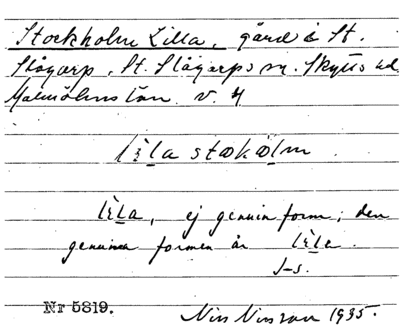 Stockholm Lilla, gård i St.
Slågarp, St. Slågarps sn. Skytts hd.
Malmöhus län. v. 4
lɛ̀la stɔkɔlm.
lɛ̀la, ej genuin form; den
genuina formen är lɛ̀le.
J-s.
Nr 5819.
Nils Nilsson 1935.